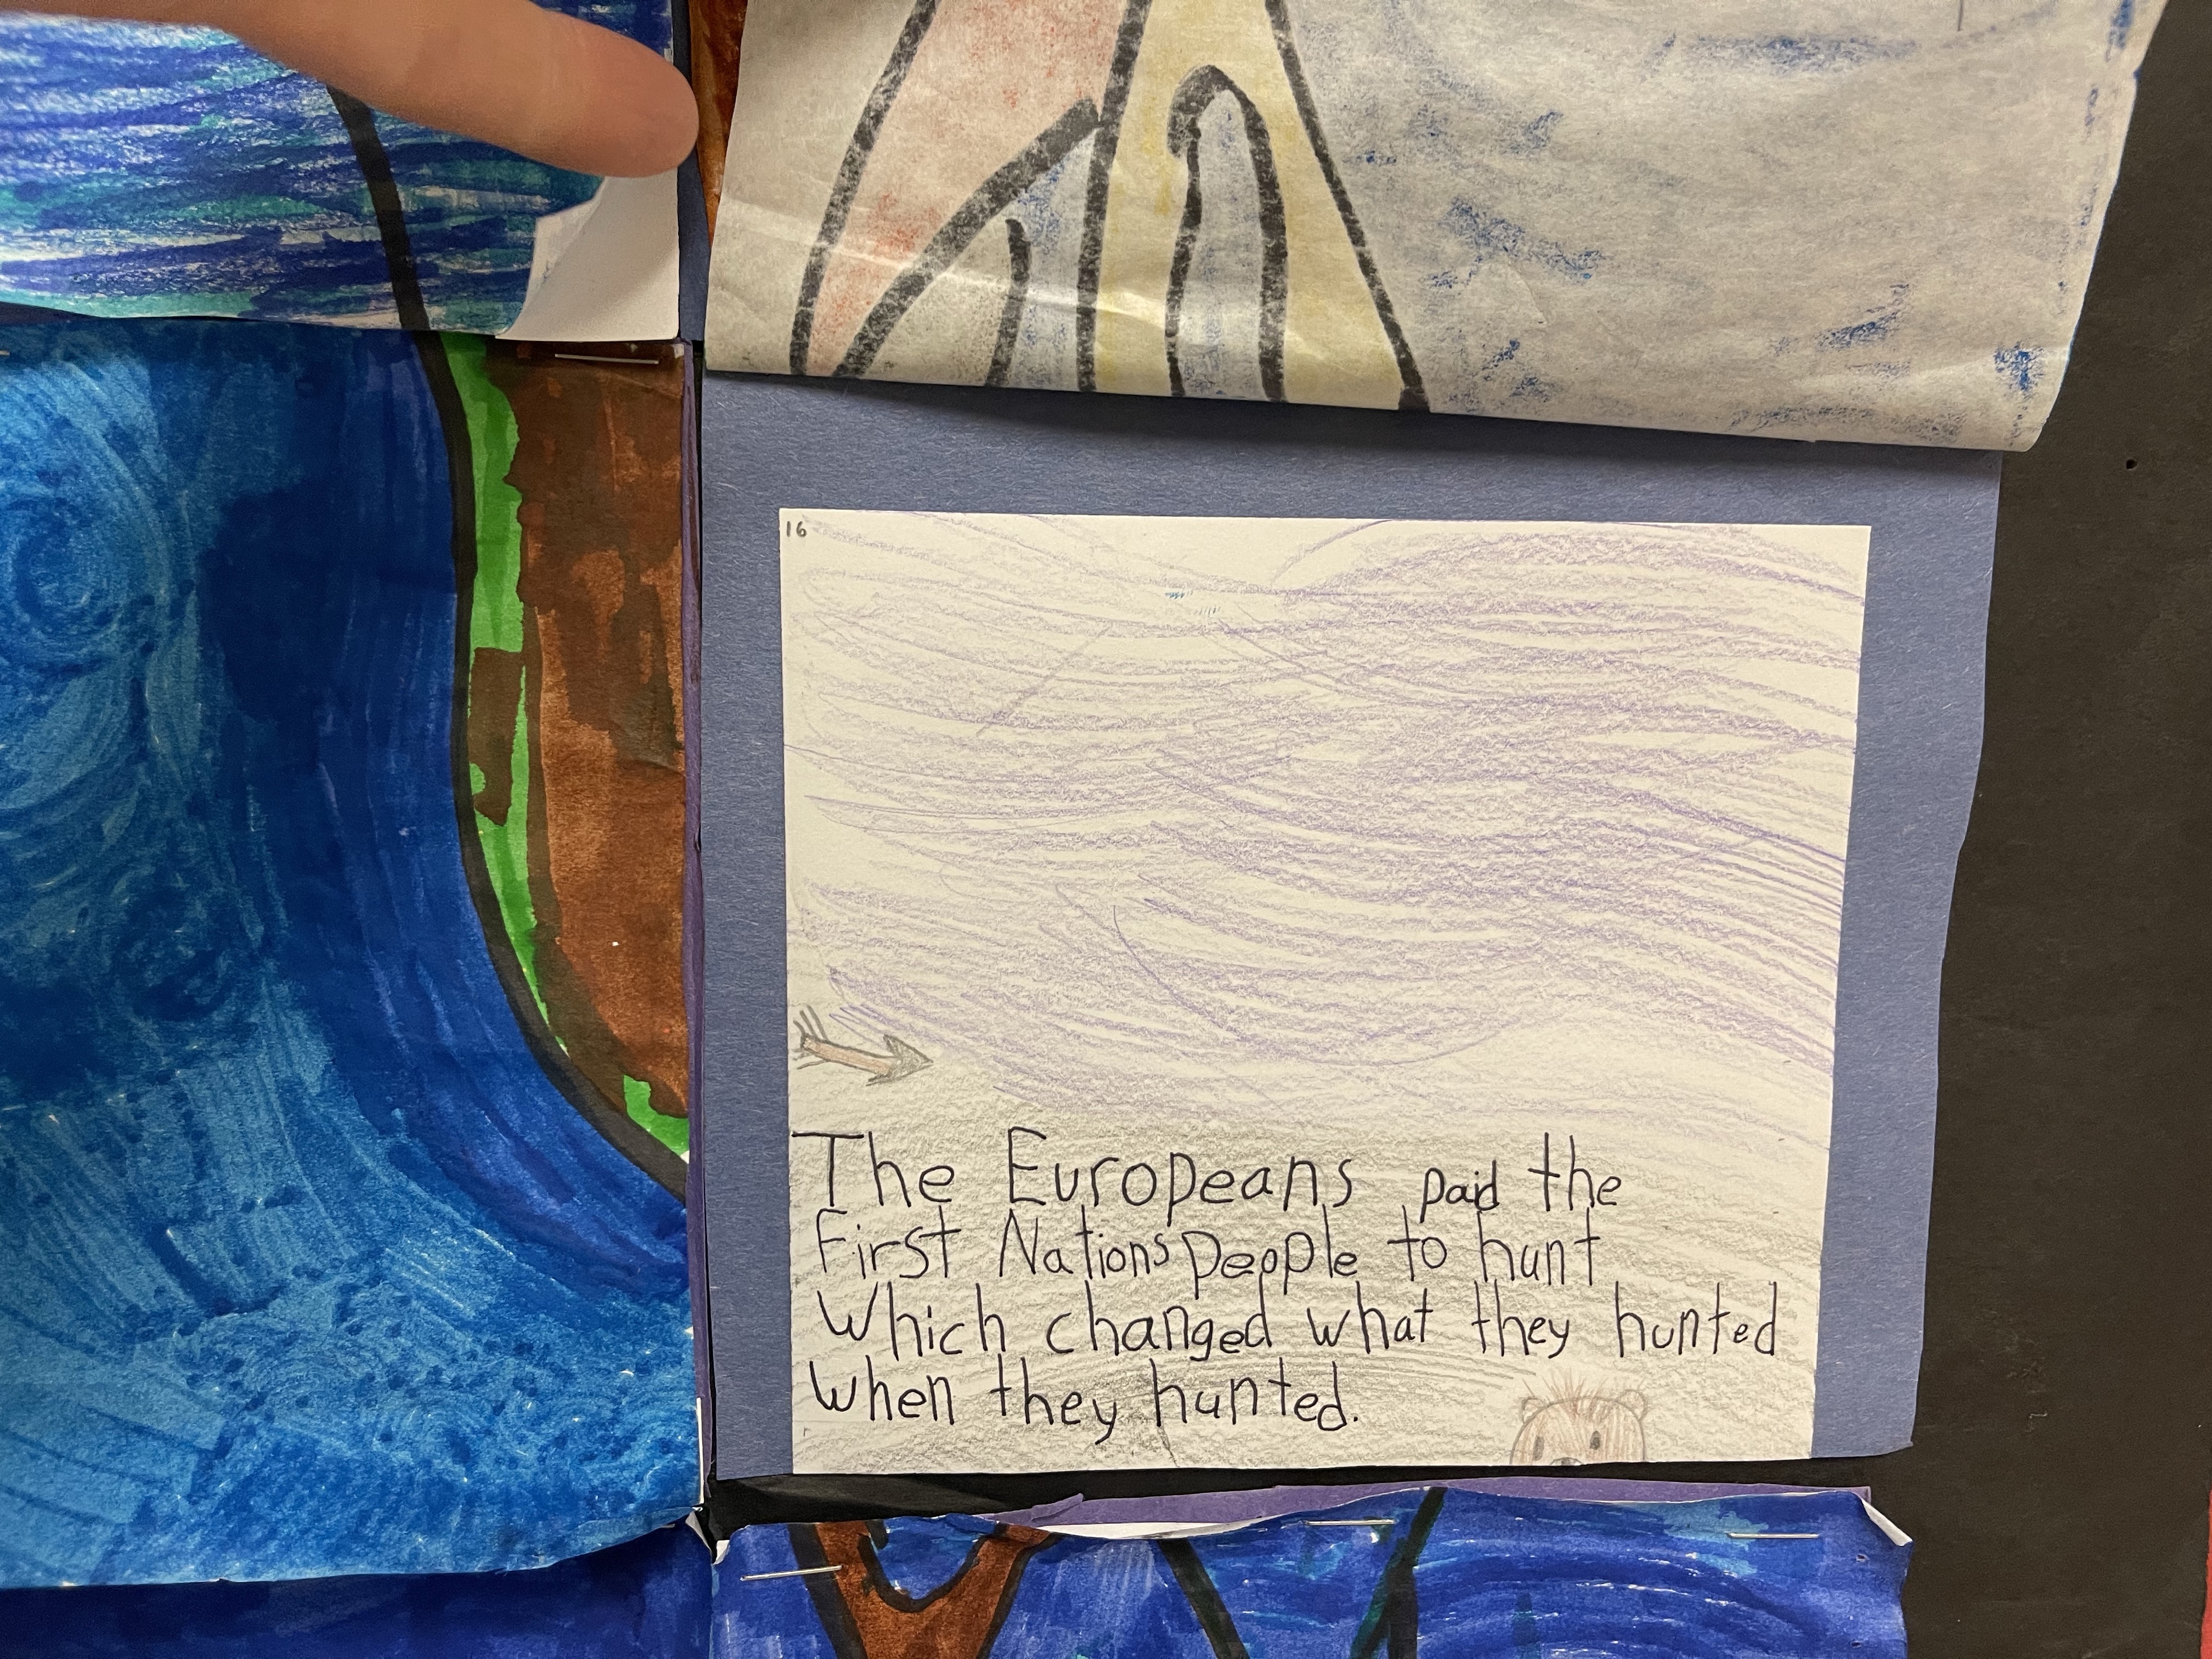 16
The Europeans paid the
First Nations People to hunt
Which changed what they hunted
when they hunted.